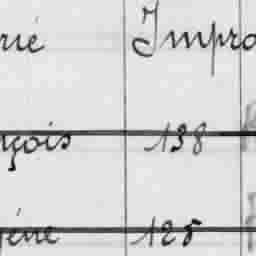 rié Impro
çois 138
gène 128